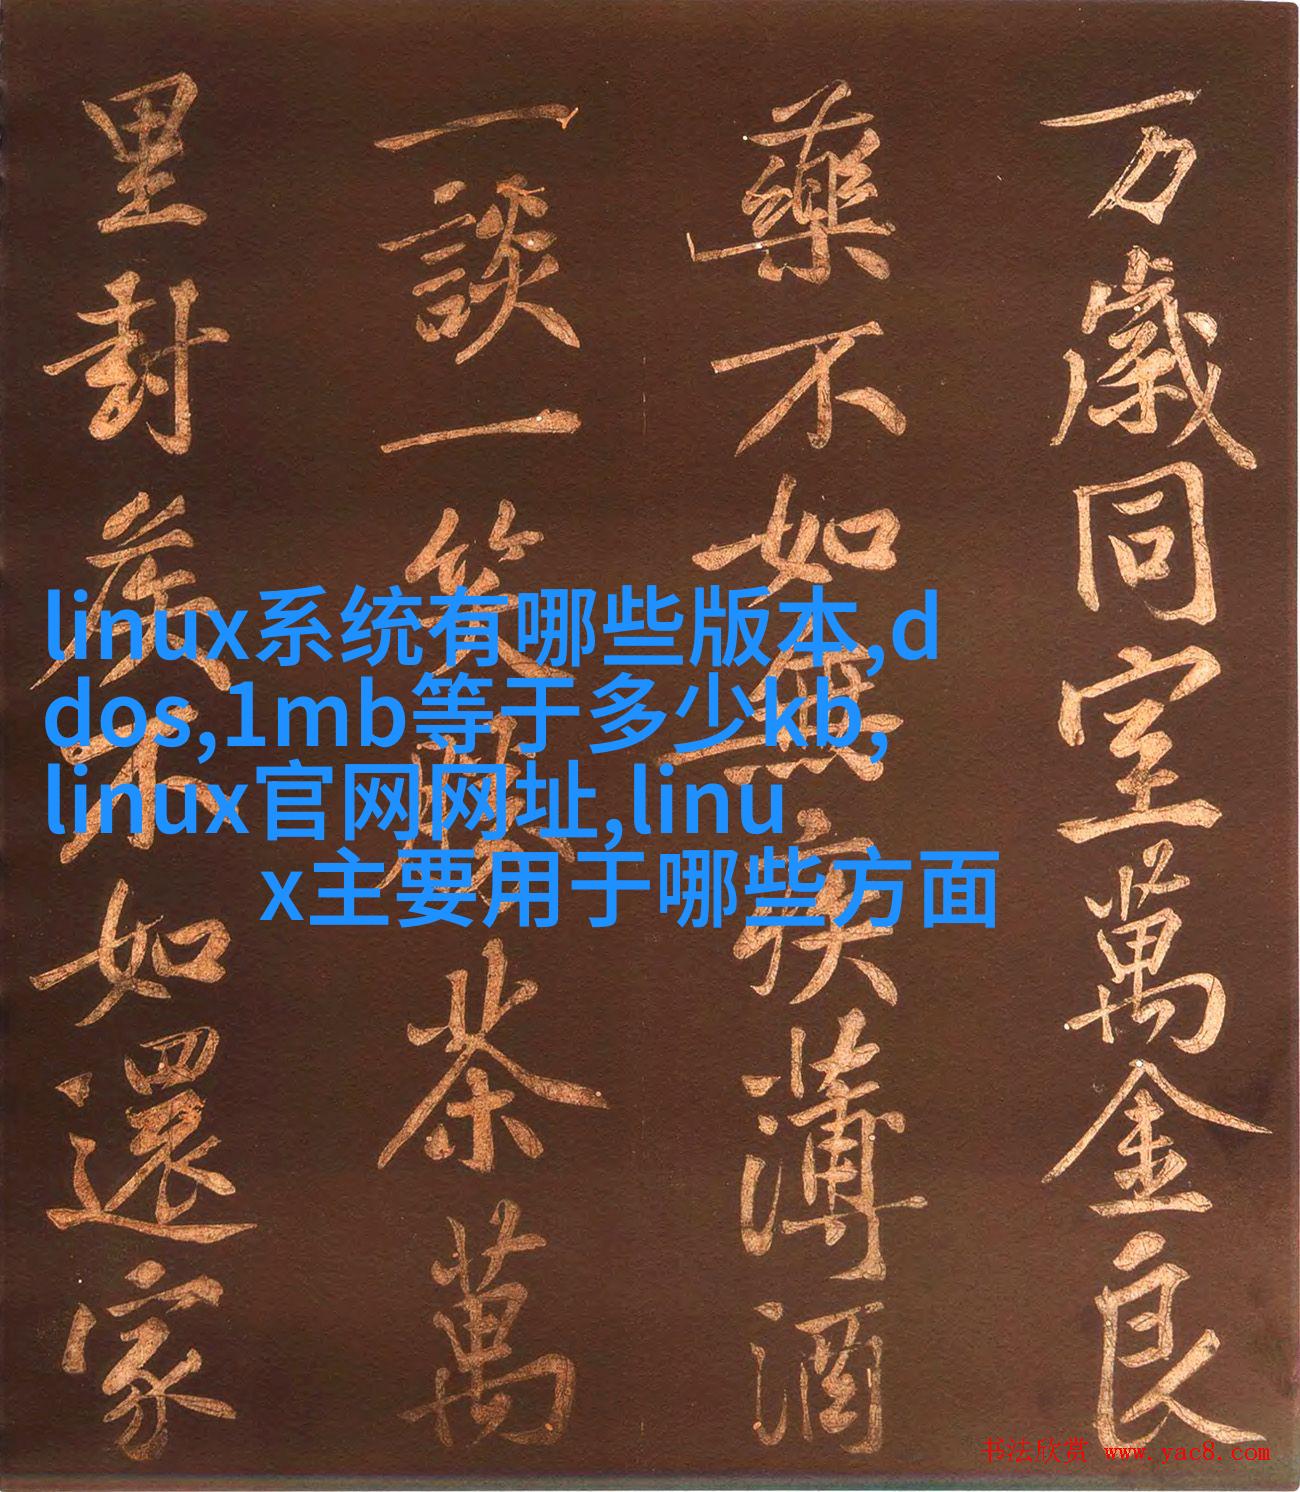 万歲同室萬金良
藥不如無疾薄酒
一談一笑勝茶萬
里封侯不如還家
linux系统有哪些版本,d
dos,1mb等于多少kb,
linux官网网址,linu
x主要用于哪些方面
书法欣赏 www.yac8.com